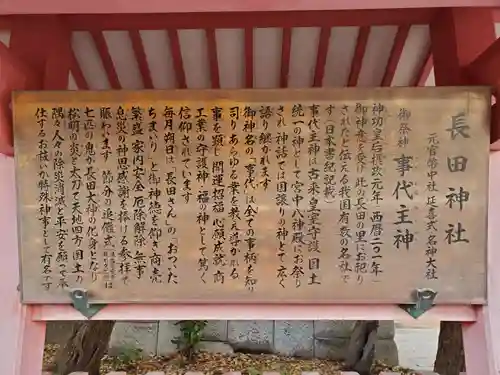 長田神社
元官幣中社 延喜式名神大社
御祭神 事代主神
神功皇后摂政元年(西暦二〇一年)
御神意を受け此の長田の里にお祀り
されたと伝える我国有数の名社で
す(日本書紀記載)
事代主神は古来皇室守護 国土
統一の神として宮中八神殿にお祭り
され 神話では国譲りの神として広く
語り継れます
御神名の「事代」は全ての事柄を知り
司りあらゆる業を教え導かれる
事を顕し 開運招福 心願成就 商
工業の守護神 福の神として篤く
信仰されています
毎月朔日は「長田さん」の「おついた
ちまいり」と御神徳を仰ぎ商売
繁盛 家内安全 厄除解除 無事
息災の神恩感謝を捧げる参拝で
賑わます 節分の追儺式は
七匹の鬼が長田大神の化身となり
松明の炎と太刀で天地四方 国土の
隅々人々の除災消滅と平安を願って奉
仕するお祓い特殊神事として有名です